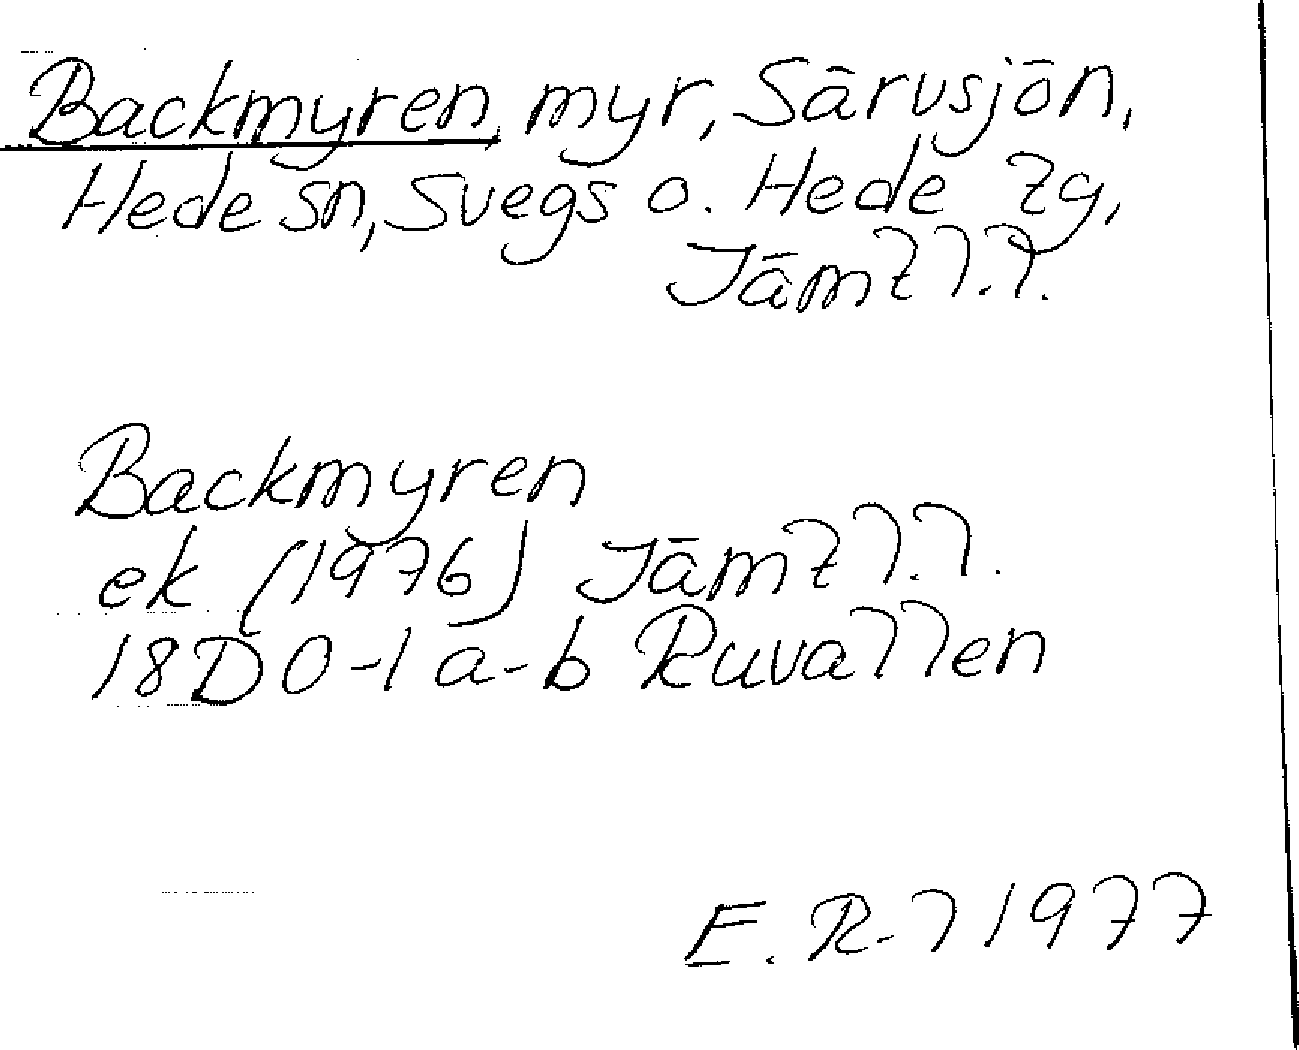 Backmyren, myr, Särvsjön,
Hede sn, Svegs o. Hede tg,
Jämtl.l.
Backmyren
ek (1976) Jämtl.l.
18D 0-1 a-b Ruvallen
E. R-l 1977